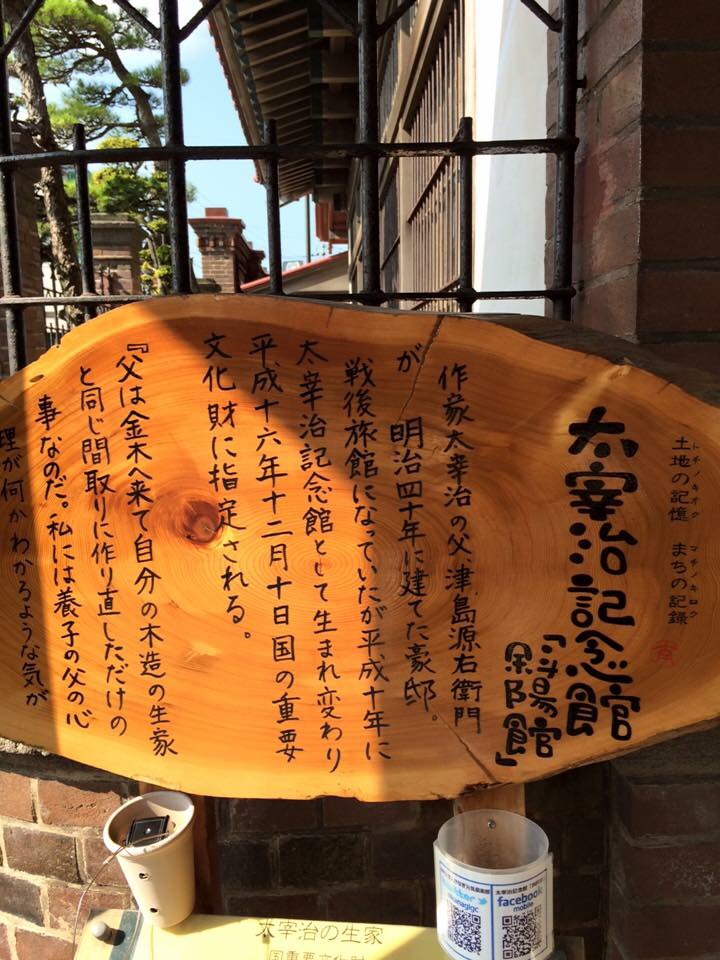 土地の記憶 まちの記録
トチノキオク マチノキロク
太宰治記念館
「斜陽館」
作家太宰治の父津島源右衛門
が 明治四十年に建てた豪邸。
戦後旅館になっていたが平成十年に
太宰治記念館として生まれ変わり
平成十六年十二月十日国の重要
文化財に指定される。
『父は金木へ来て自分の木造の生家
と同じ間取りに作り直しただけの
事なのだ。私には養子の父の心
理が何かわかるような気が
facebook
mobile
太宰治の生家
国重要文化財